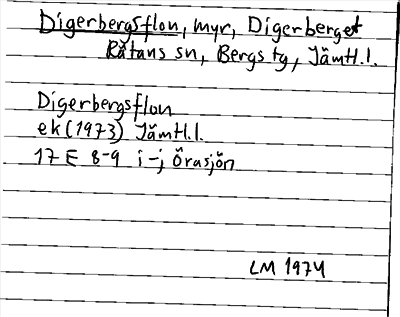 Digerbergsflon, myr, Digerberget
Rätans sn, Bergs tg, Jämtl.l.
Digerbergsflon
ek (1973) Jämtl.l.
17 E 8-9 i-j Örasjön
LM 1974